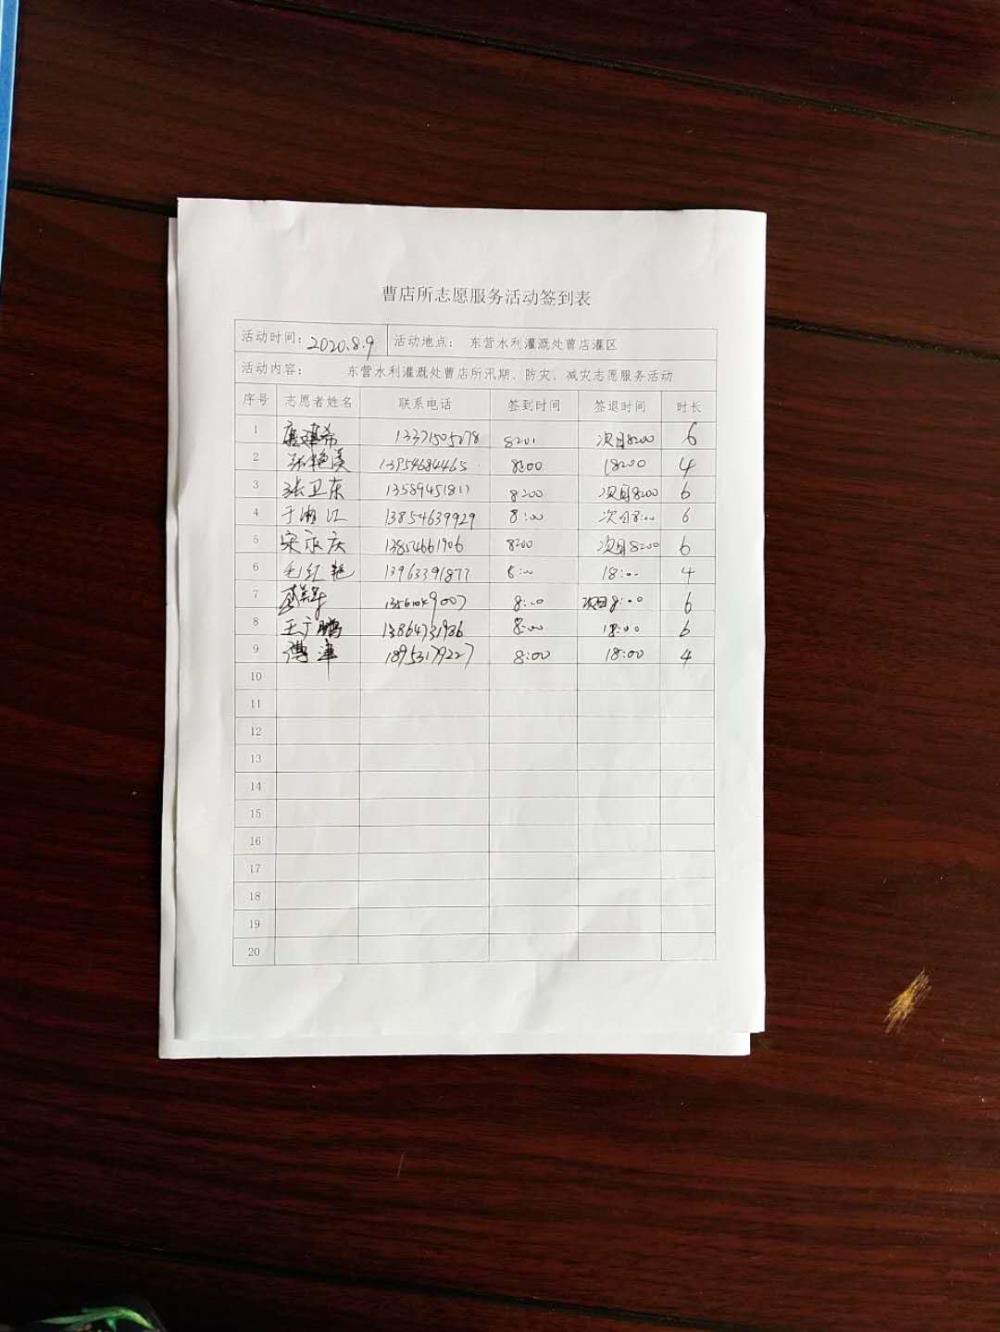 曹店所志愿服务活动签到表
活动时间：2020.8.9 活动地点： 东营水利灌溉处曹店灌区
活动内容： 东营水利灌溉处曹店所汛期、防灾、减灾志愿服务活动
序号 志愿者姓名 联系电话 签到时间 签退时间 时长
1 建希 13371505278 8:01 次日8:00 6
2 张艳 13954684465 8:00 18:00 4
3 张卫东 13589451811 8:00 次日8:00 6
4 于湘江 13854639929 8:00 次日8:00 6
5 宋永庆 13854661906 8:00 次日8:00 6
6 毛红艳 13963391877 8:00 18:00 4
7 8:00 次日8:00 6
8 王广鹏 13864731986 8:00 18:00 6
9 傅军 18953179227 8:00 18:00 4
10
11
12
13
14
15
16
17
18
19
20